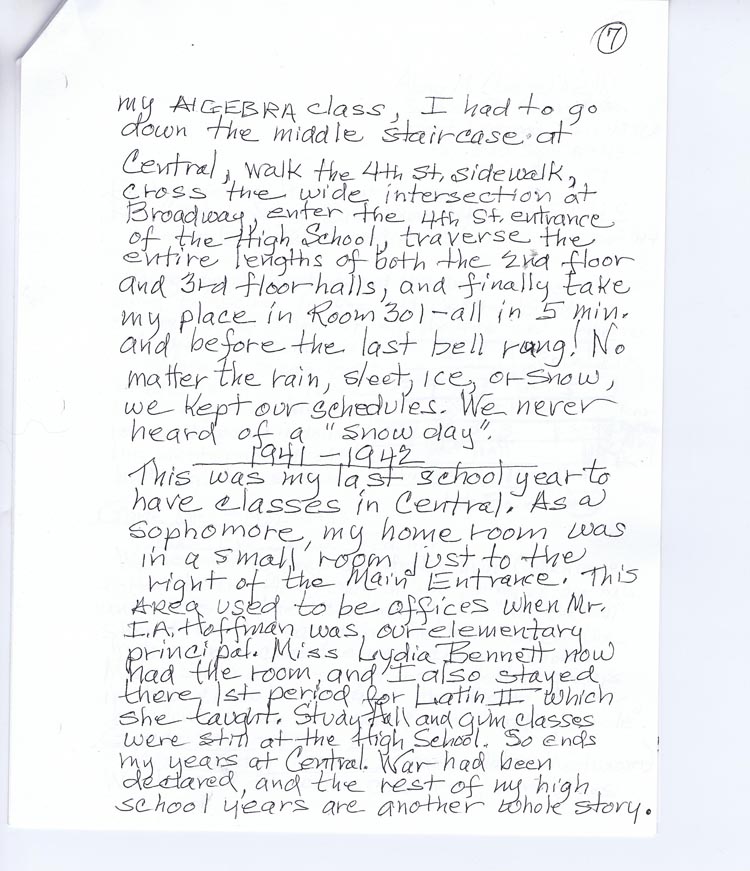 7
my AlGEBRA class, I had to go
down the middle staircase at
Central, walk the 4th St. sidewalk,
cross the wide intersection at
Broadway, enter the 4th St. entrance
of the High School, traverse the
entire lengths of both the 2nd floor
and 3rd floor halls, and finally take
my place in Room 301-all in 5 min.
and before the last bell rang! No
matter the rain, sleet, ice, or snow,
we kept our schedules. We never
heard of a "snow day".
1941-1942
This was my last school year to
have classes in Central. As a
Sophomore, my home room was
in a small room just to the
right of the Main Entrance. This
AREA used to be offices when Mr.
I.A. Hoffman was, our elementary
principal. Miss Lydia Bennett now
had the room, and I also stayed
there 1st period for Latin II which
she taught. Study Hall and gym classes
were still at the High School. So ends
my years at Central. War had been
declared, and the rest of my high
school years are another whole story.